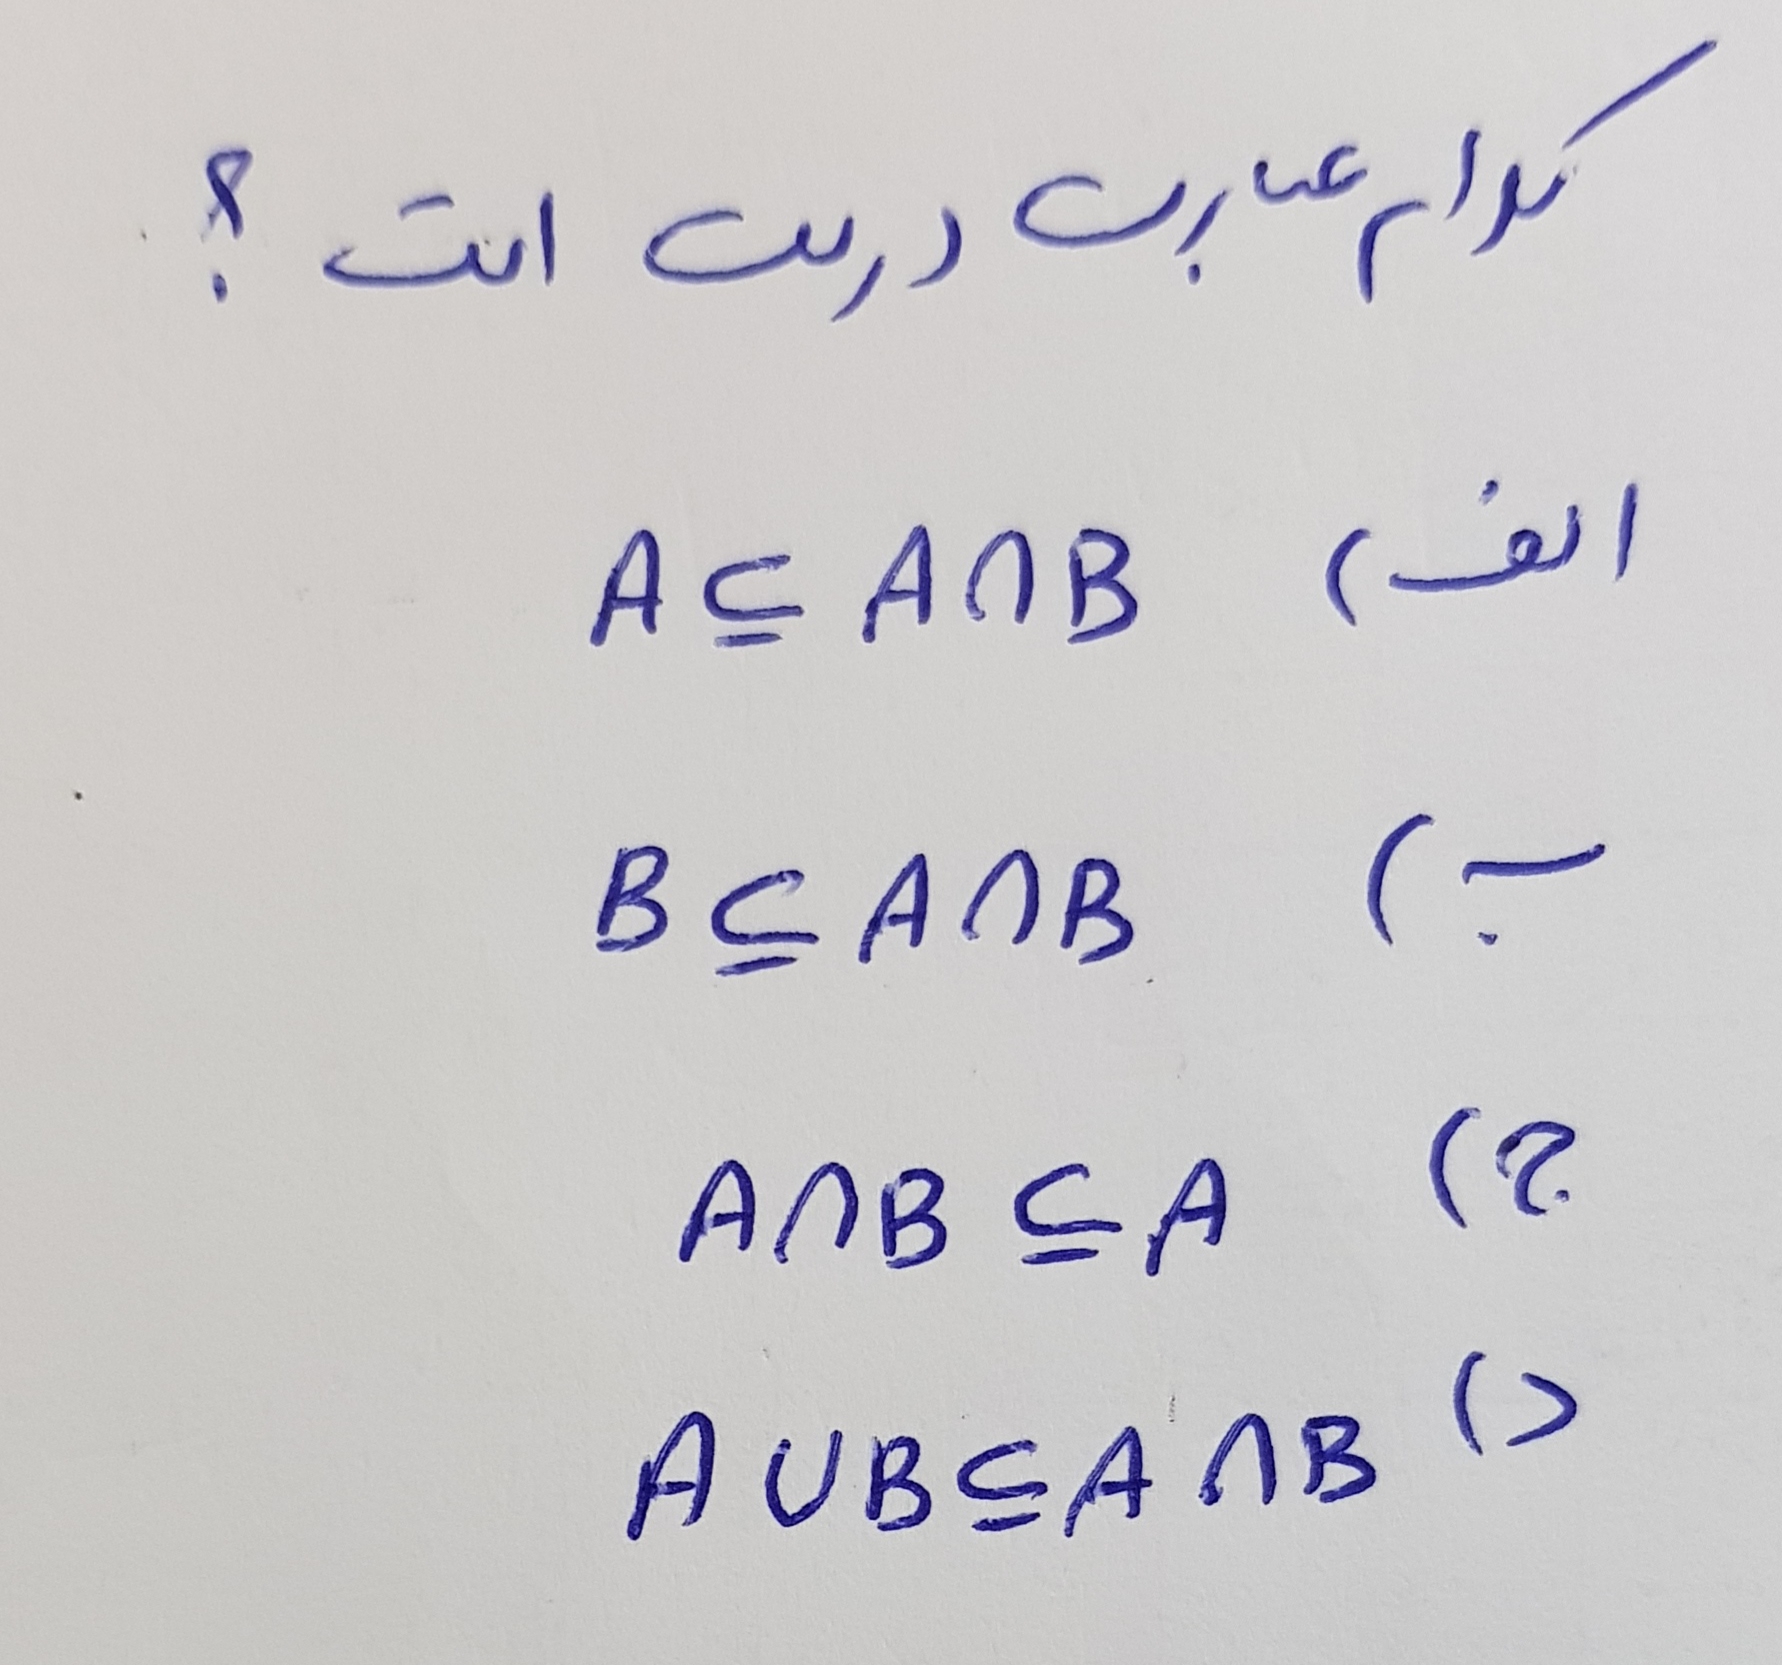 کدام عبارت درست است ؟
الف) A ⊆ A ∩ B
ب) B ⊆ A ∩ B
ج) A ∩ B ⊆ A
د) A ∪ B ⊆ A ∩ B